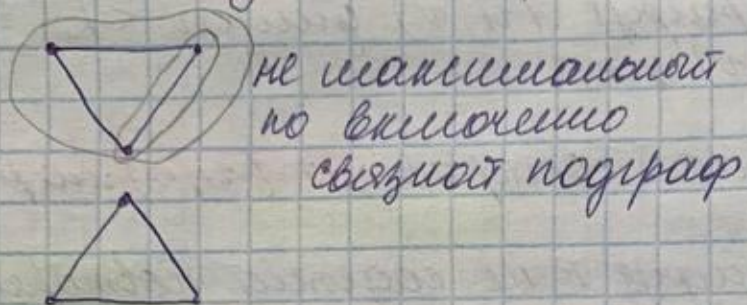 не максимальный
по включению
связной подграф